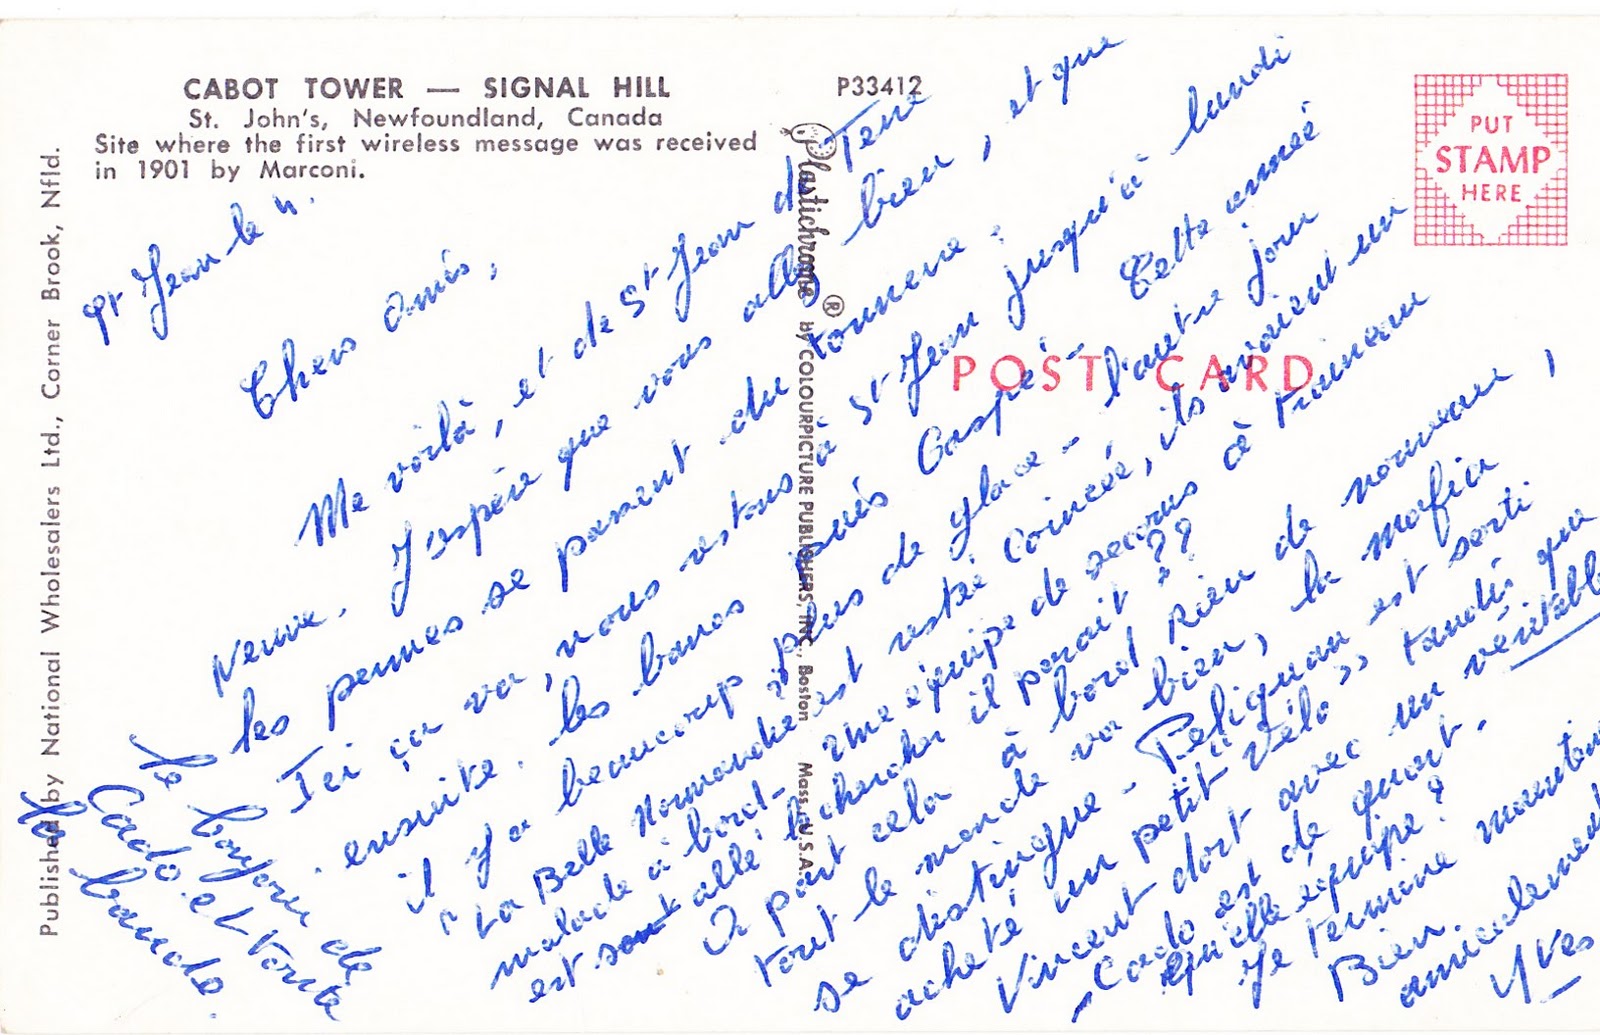 CABOT TOWER — SIGNAL HILL
St. John's, Newfoundland, Canada
Site where the first wireless message was received
in 1901 by Marconi.
P33412
PUT
STAMP
HERE
POST CARD
Published by National Wholesalers Ltd., Corner Brook, Nfld.
Plastichrome ® by COLOURPICTURE PUBLISHERS, INC., Boston Mass. U.S.A.
St Jean le 4.
Chers Amis,
Me voilà, et de St Jean de Terre
Neuve. J'espère que vous allez bien, et que
les pennes se passent du tonnerre.
Ici ça va, nous restons à St Jean jusqu'à lundi
ensuite. les bancs puis Gaspé - Cette année
il y a beaucoup plus de glace - l'autre jour
"La Belle Normandie est resté coincée, ils avaient un
malade à bord - Une équipe de secours à traineau
est allé le chercher il parait ??
A part cela à bord rien de nouveau,
tout le monde va bien, la mafia
se distingue - Peliquan est sorti
acheté un petit "vélo" tandis que
Vincent dort avec un véritable
- Cado est de quart.
Quelle équipe ?
Je termine
Bien
amicalement
Yves
le bonjour de
Cado et toute
la bande.